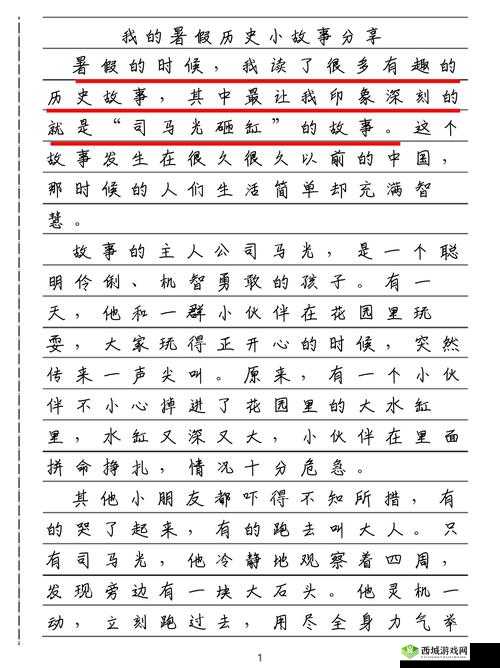 我的暑假历史小故事分享
暑假的时候，我读了很多有趣的
历史故事，其中最让我印象深刻的
就是“司马光砸缸”的故事。这个
故事发生在很久很久以前的中国，
那时候的人们生活简单却充满智
慧。
故事的主人公司马光，是一个聪
明伶俐、机智勇敢的孩子。有一
天，他和一群小伙伴在花园里玩
耍，大家玩得正开心的时候，突然
传来一声尖叫。原来，有一个小伙
伴不小心掉进了花园里的大水缸
里，水缸又深又大，小伙伴在里面
拼命挣扎，情况十分危急。
其他小朋友都吓得不知所措，有
的哭了起来，有的跑去叫大人。只
有司马光，他冷静地观察着四周，
发现旁边有一块大石头。他灵机一
动，立刻跑过去，用尽全身力气举
1
西城游戏网